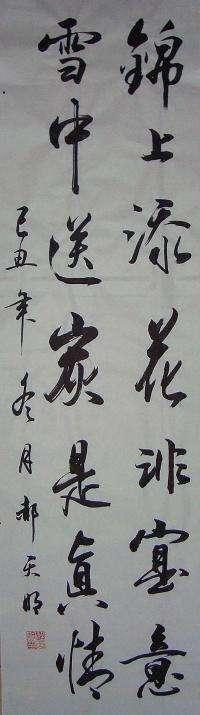 錦上添花非實意
雪中送炭是真情
己丑年冬月郝天明